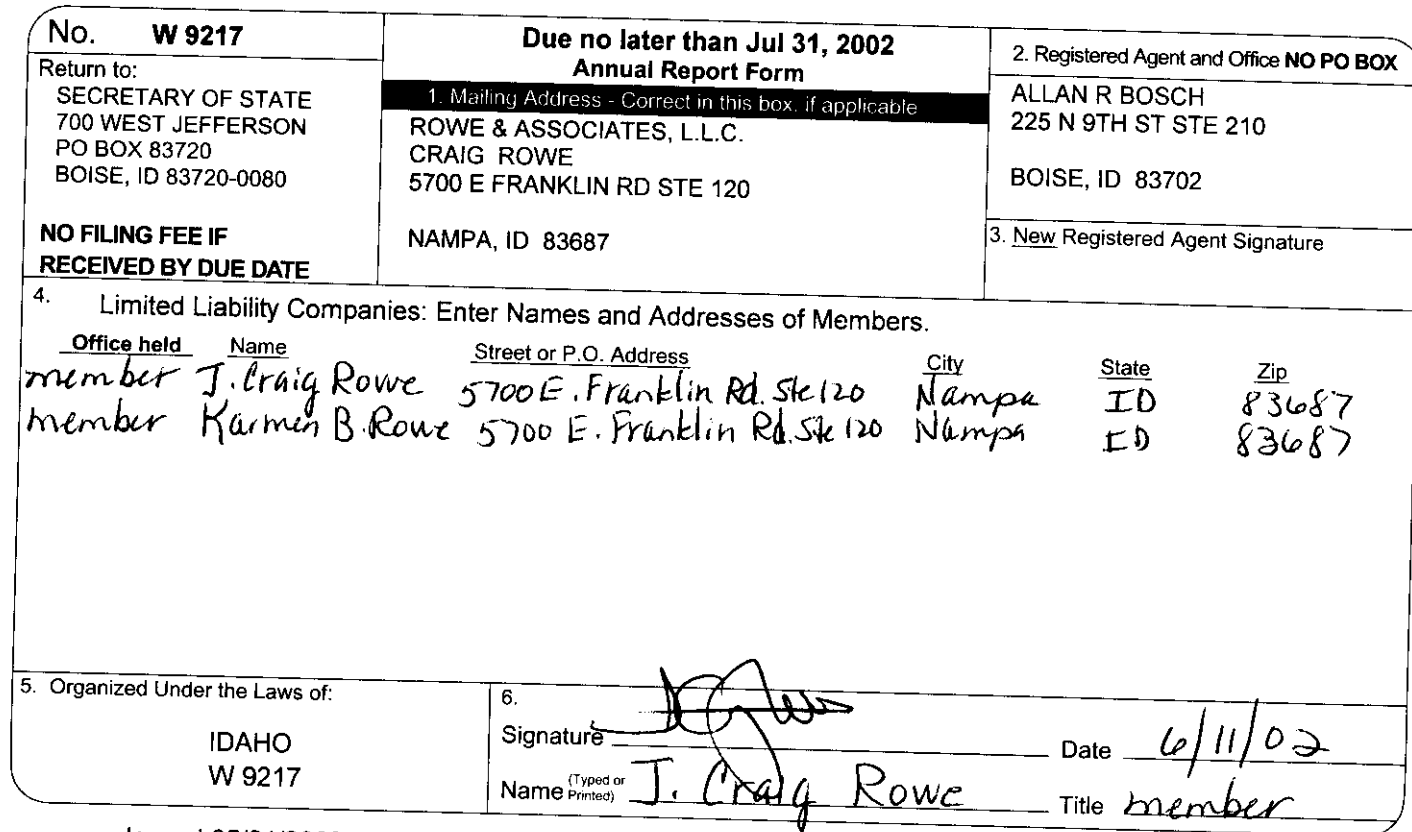 No. W 9217
Return to:
SECRETARY OF STATE
700 WEST JEFFERSON
PO BOX 83720
BOISE, ID 83720-0080
NO FILING FEE IF
RECEIVED BY DUE DATE
Due no later than Jul 31, 2002
Annual Report Form
1. Mailing Address - Correct in this box, if applicable
ROWE & ASSOCIATES, L.L.C.
CRAIG ROWE
5700 E FRANKLIN RD STE 120
NAMPA, ID 83687
2. Registered Agent and Office NO PO BOX
ALLAN R BOSCH
225 N 9TH ST STE 210
BOISE, ID 83702
3. New Registered Agent Signature
4. Limited Liability Companies: Enter Names and Addresses of Members.
Office held Name Street or P.O. Address City State Zip
member J. Craig Rowe 5700 E. Franklin Rd. Ste 120 Nampa ID 83687
member Karmen B. Rowe 5700 E. Franklin Rd. Ste 120 Nampa ID 83687
5. Organized Under the Laws of:
IDAHO
W 9217
6.
Signature Date 6/11/02
Name (Typed or Printed) J. Craig Rowe Title member